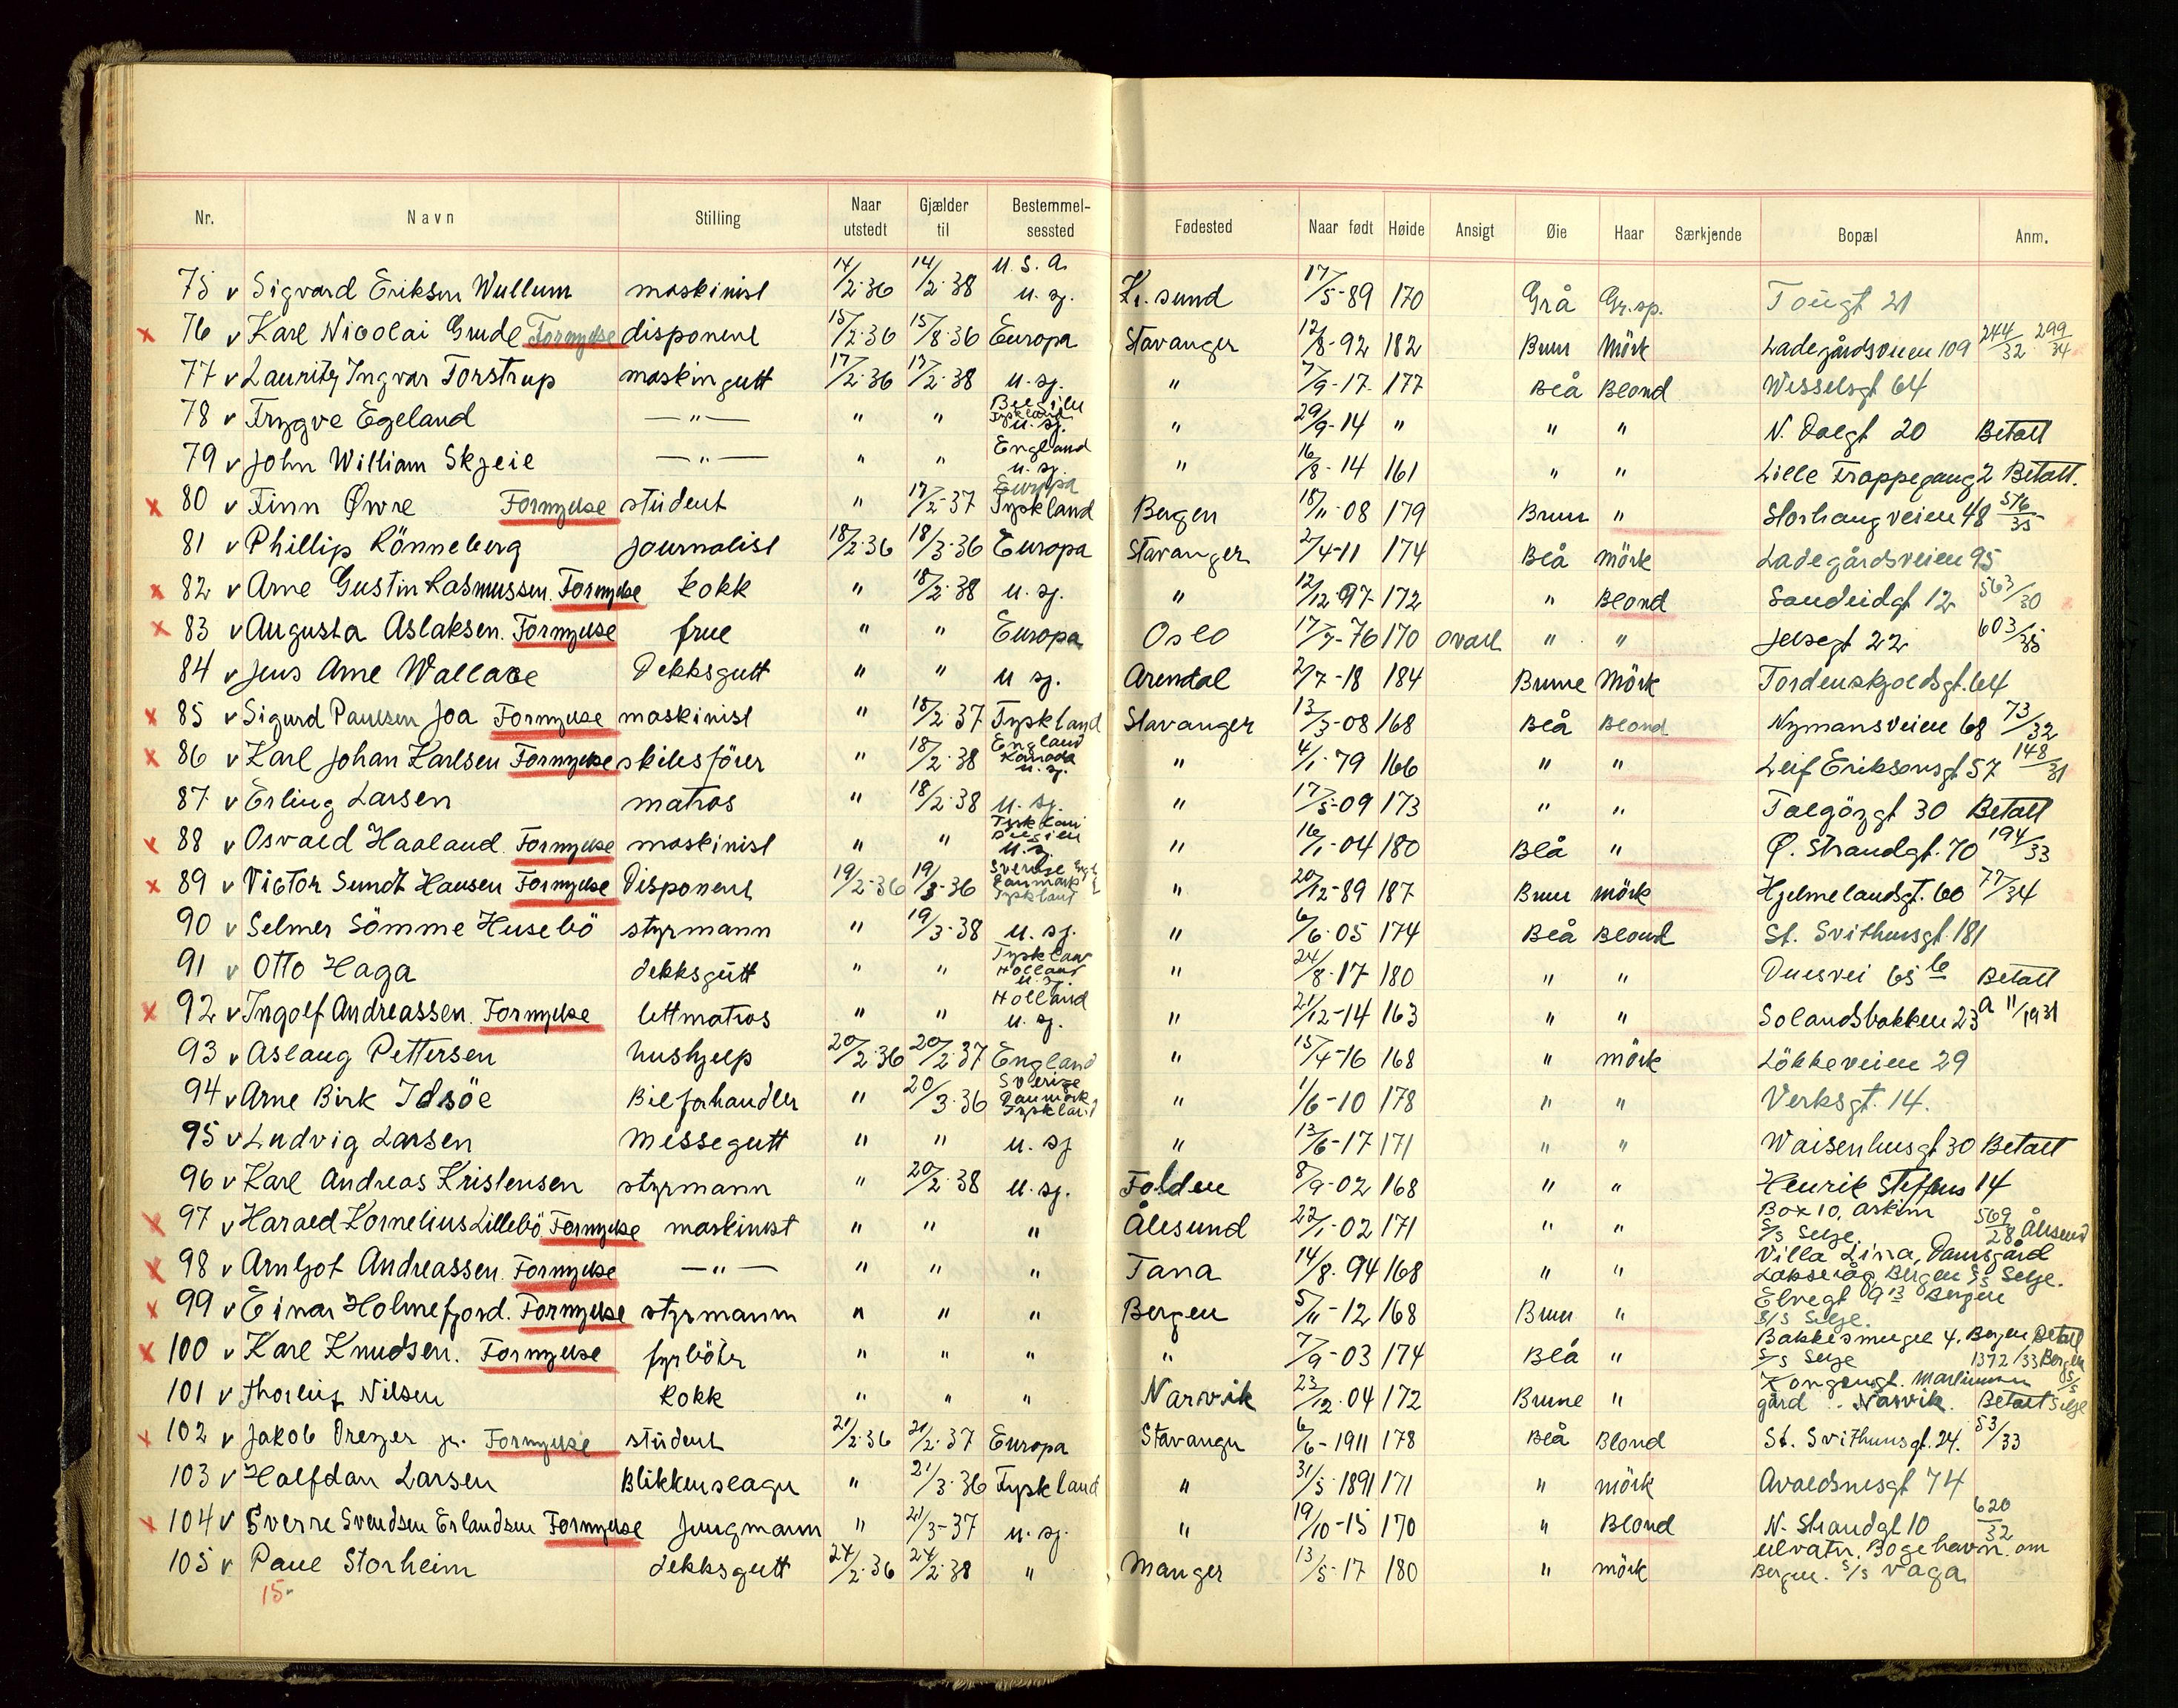 Nr. Navn Stilling Naar utstedt Gjælder til Bestemmelsessted Fødested Naar født Høide Ansigt Øie Haar Særkjende Bopæl Anm.
75 v Sigvard Eriksen Wullum maskinist 14/2-36 14/2-38 U.S.A. u. sj. Kr. sund 17/5-89 170 Grå Gr.sp. Tougt 21
x 76 v Karl Nicolai Grude Fornyelse disponent 15/2-36 15/8-36 Europa Stavanger 12/8-92 182 Brun Mörk Ladegårdsveien 109 244/32 299/34
77 v Lauritz Ingvar Torstrup maskingutt 17/2-36 17/2-38 u. sj. " 7/9-17 177 Blå Blond Wesselsgt 64
78 v Trygve Egeland —"— " " Belgien Tyskland u. sj. " 29/9-14 " " " N. Dalgt 20 Betalt
79 v John William Skjeie —"— " " England u. sj. " 16/8-14 161 " " Lille Trappegang 2 Betalt.
x 80 v Finn Øvre Fornyelse student " 17/2-37 Europa Tyskland Bergen 18/11-08 179 Brun " Storhaugveien 48 576/35
81 v Phillip Rönneberg journalist 18/2-36 18/3-36 Europa Stavanger 2/4-11 174 Blå Mörk Ladegårdsveien 95
x 82 v Arne Gustin Rasmussen. Fornyelse kokk " 18/2-38 u. sj. " 12/12-97 172 " Blond Sandeidgt 12 563/30
x 83 v Augusta Aslaksen. Fornyelse frue " " Europa Oslo 17/7-76 170 ovalt " " Jelsegt 22 603/35
84 v Jens Arne Wallace Dekksgutt " " u sj. Arendal 2/7-18 184 Brune Mörk Tordenskjoldsgt. 64
x 85 v Sigurd Paulsen Joa Fornyelse maskinist " 18/2-37 Tyskland Stavanger 13/3-08 168 Blå Blond Nymansveien 68 73/32
x 86 v Karl Johan Karlsen Fornyelse skibsförer " 18/2-38 England Kanada u. sj. " 4/1-79 166 " " Leif Eriksonsgt 57 148/31
87 v Erling Larsen matros " 18/2-38 u. sj. " 17/5-09 173 " " Talgözgt 30 Betalt
x 88 v Osvald Haaland Fornyelse maskinist " " Tyskland Belgien u. sj. " 16/1-04 180 Blå " Ø. Strandgt. 70 194/33
x 89 v Victor Sundt Hansen Fornyelse Disponent 19/2-36 19/3-36 Sverige Engl. Danmark Tyskland " 20/12-89 187 Brun mörk Hjelmelandsgt. 60 77/34
90 v Selmer Sömme Husebö styrmann " 19/3-38 u. sj. " 6/6-05 174 Blå Blond St. Svithunsgt. 181
91 v Otto Haga dekksgutt " " Tyskland Holland u. sj. " 24/8-17 180 " " Duesvei 65 b Betalt
x 92 v Ingolf Andreassen. Fornyelse lettmatros " " Holland u. sj. " 21/12-14 163 " " Solandsbakken 23 a 11/1931
93 v Aslaug Pettersen hushjelp 20/2-36 20/2-37 England " 15/4-16 168 " mörk Lökkeveien 29
94 v Arne Birk Idsöe Bilforhandler " 20/3-36 Sverige Danmark Tyskland " 1/6-10 178 " " Verksgt. 14.
95 v Ludvig Larsen Messegutt " " u. sj " 13/6-17 171 " " Waisenhusgt 30 Betalt
96 v Karl Andreas Kristensen styrmann " 20/2-38 u. sj. Folden 8/9-02 168 " " Henrik Steffens 14
x 97 v Harald Kornelius Lillebö Fornyelse maskinist " " " Ålesund 22/1-02 171 " " Box 10, Askim S/S Selje. 569/28 Ålesund
x 98 v Arnljot Andreassen. Fornyelse —"— " " " Tana 14/8-94 168 " " Villa Lina, Damsgård Laksevåg, Bergen S/S Selje.
x 99 v Einar Holmefjord. Fornyelse styrmann " " " Bergen 5/11-12 168 Brun " Elvegt 9 B Bergen S/S Selje.
x 100 v Karl Knudsen. Fornyelse fyrböter " " " " 7/9-03 174 Blå " Bakkesmuget 4. Bergen Betalt S/S Selje 1372/33 Bergen
101 v Thorleif Nilsen kokk " " " Narvik 23/12-04 172 Brune " Kongensgt. gård Narvik. Betalt S/S Selje
x 102 v Jakob Dreyer jr. Fornyelse student 21/2-36 21/2-37 Europa Stavanger 6/6-1911 178 Blå Blond St. Svithunsgt. 24. 53/33
103 v Halfdan Larsen Blikkenslager " 21/3-36 Tyskland " 31/5-1891 171 " mörk Avaldsnesgt 74
x 104 v Sverre Svendsen Erlandsen Fornyelse Jungmann " 21/3-37 u. sj. " 19/10-15 170 " Blond N. Strandgt 10 620/32
105 v Paul Storheim dekksgutt 24/2-36 24/2-38 " Manger 13/5-17 180 " mörk Ulvatn. Bogehavn. om Bergen. S/S Vaga
15-